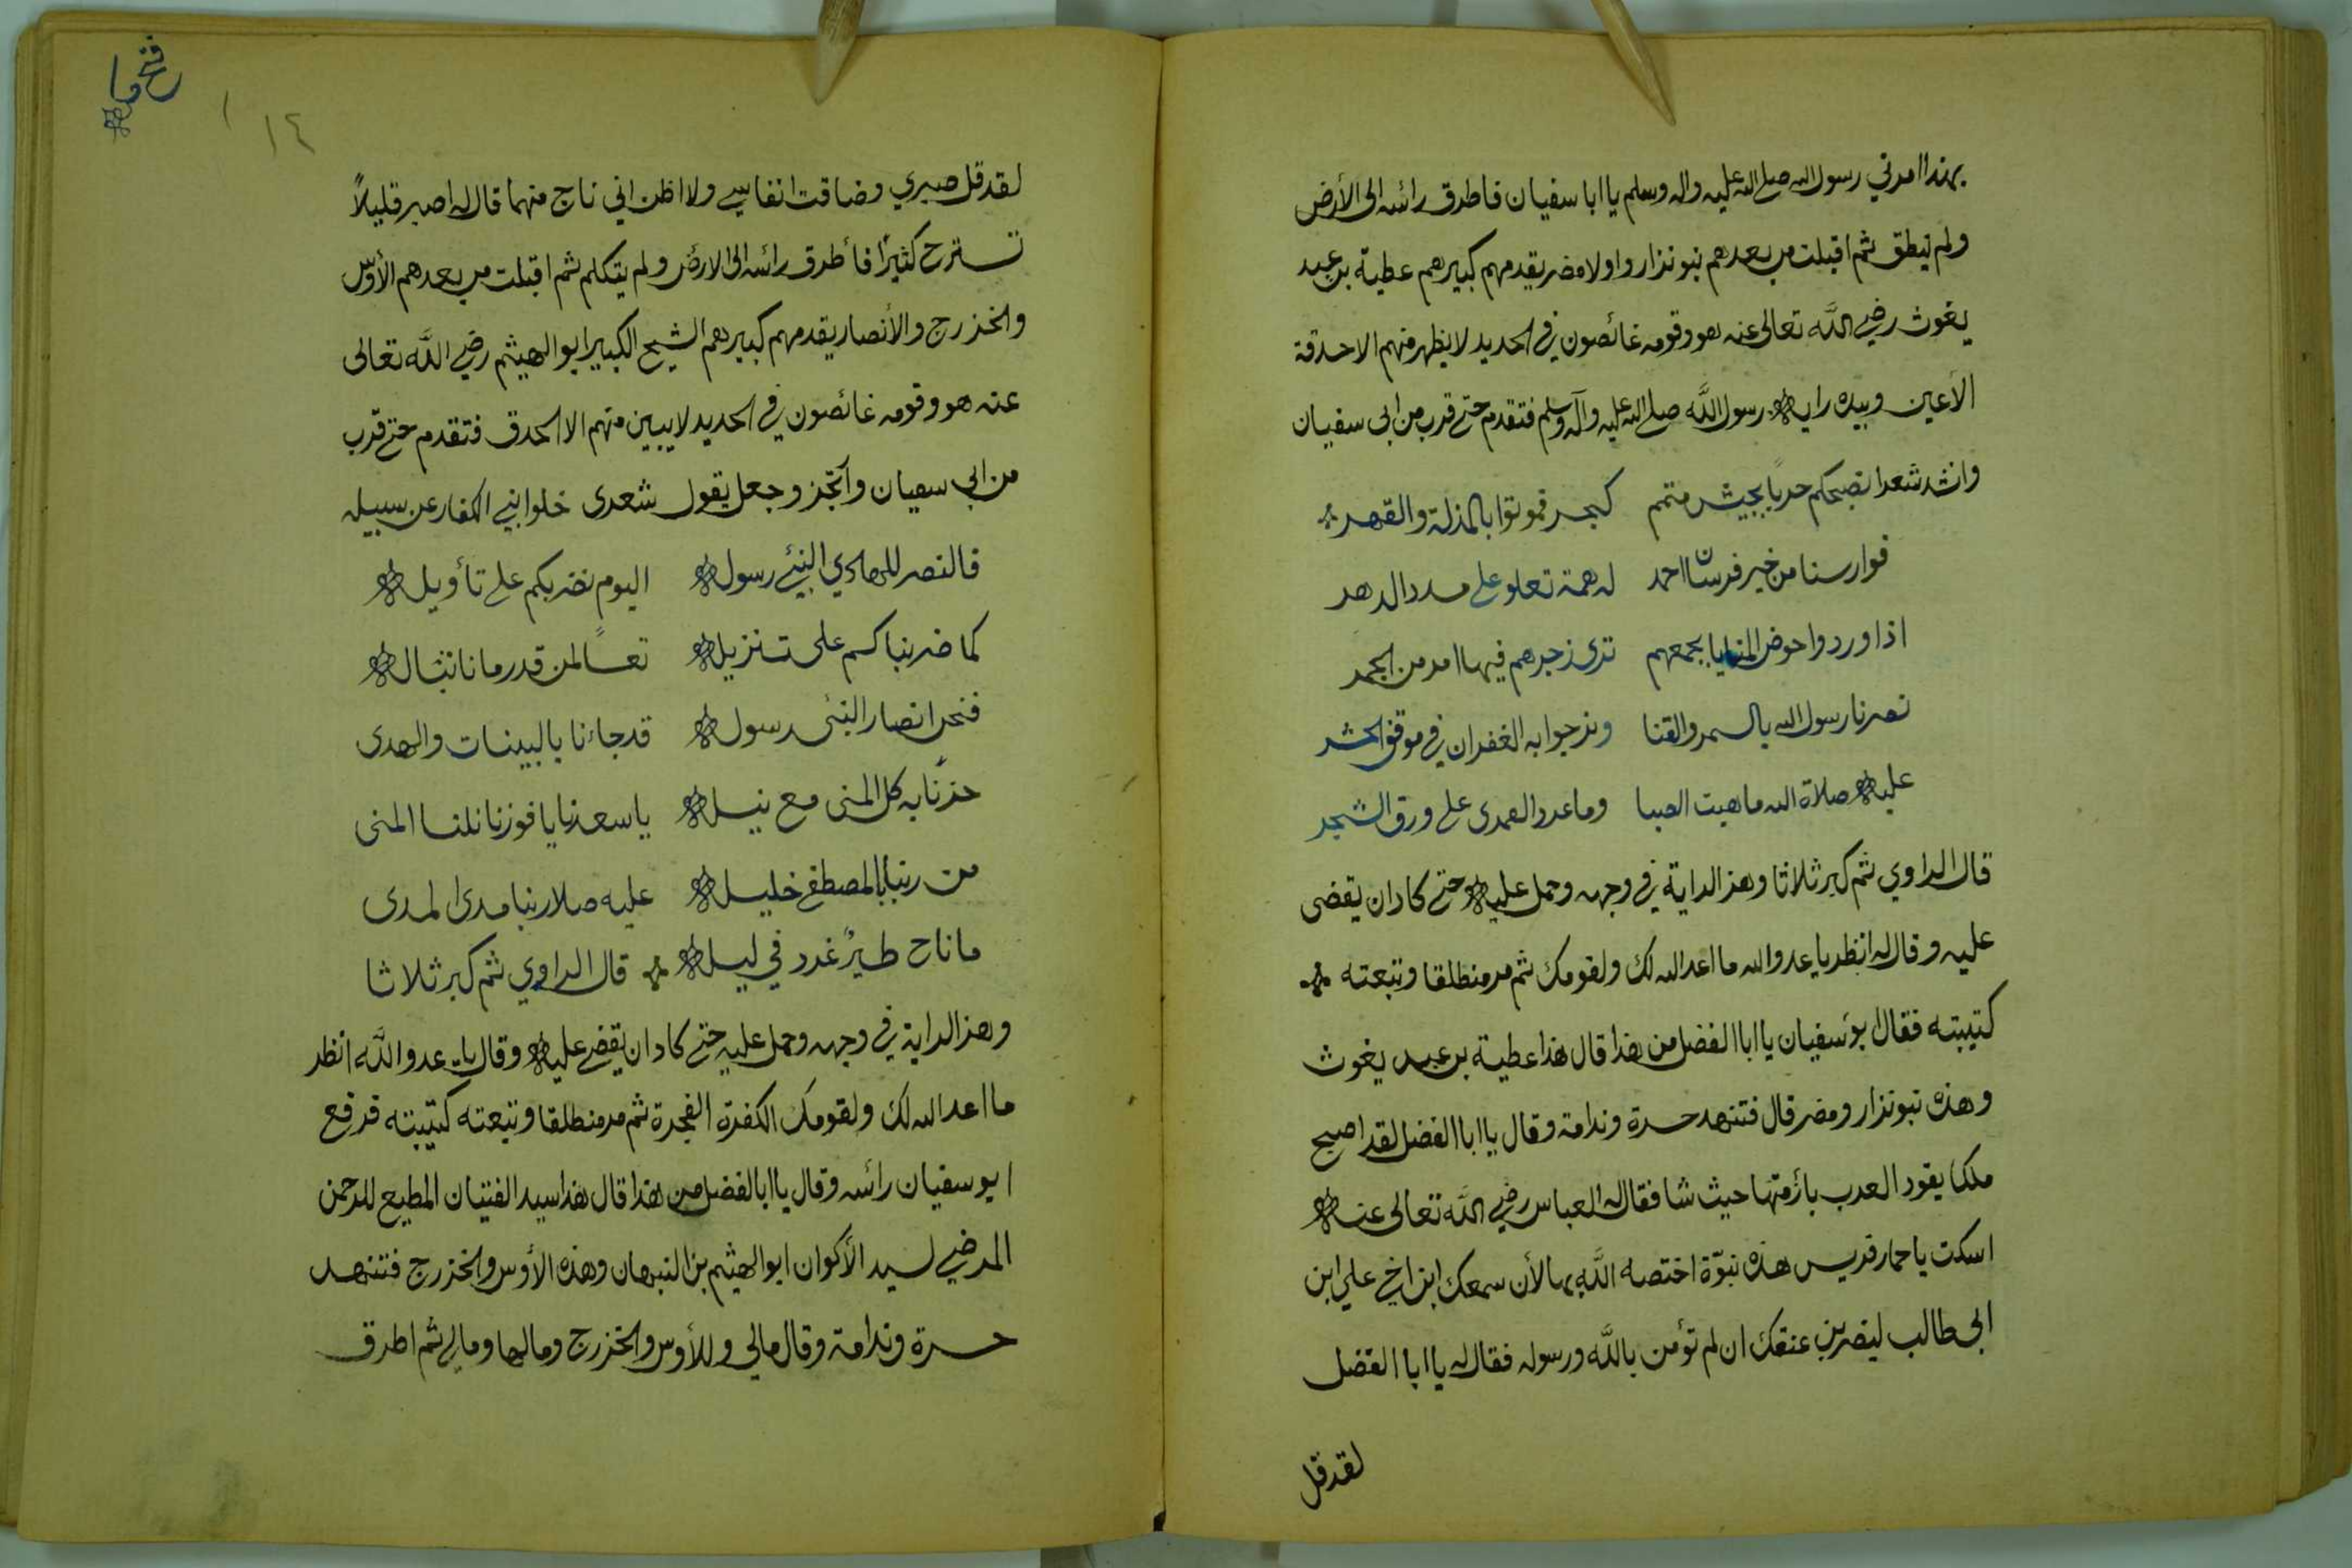 بهذا امرني رسول الله صلى الله عليه واله وسلم يا ابا سفيان فاطرق رائسه الى الأرض
ولم ينطق ثم اقبلت من بعدهم بنو نزار واولا مضر يقدمهم كبيرهم عطية بن عبد
يغوث رضي الله تعالى عنه هو وقومه غائصون في الحديد لا يظهر منهم الا حدقة
الأعين وبيده راية رسول الله صلى الله عليه وآله وسلم فتقدم حتى قرب من ابى سفيان
وانشد شعرا نصبحكم حربًا بجيش متمم كبحر فموتوا بالمذلة والقهر
فوارسنا من خير فرسان احمد له همة تعلو على مدد الدهر
اذا وردوا حوض المنايا بجمعهم ترى زجرهم فيها امر من الجمر
نصرنا رسول الله بالسمر والقنا ونرجوا به الغفران في موقف الحشر
عليه صلاة الله ما هبت الصبا وما غرد القمرى على ورق الشجر
قال الراوي ثم كبر ثلاثا وهز الراية في وجهه وحمل عليه حتى كاد ان يقضى
عليه وقال له انظر يا عدو الله ما اعد الله لك ولقومك ثم مر منطلقا وتبعته
كتيبته فقال ابو سفيان يا ابا الفضل من هذا قال هذا عطية بن عبد يغوث
وهذه بنو نزار ومضر قال فتنهد حسرة وندامة وقال يا ابا الفضل لقد اصبح
ملكا يقود العرب بأزمتها حيث شا فقال له العباس رضي الله تعالى عنه
اسكت يا حمار قريس هذه نبوّة اختصه الله بها لأن سمعك ابن اخي علي ابن
ابى طالب ليضربن عنقك ان لم تؤمن بالله ورسوله فقال له يا ابا الفضل
لقد قل
فتح ما
١٤
لقد قل صبري وضاقت انفاسي ولا اظن اني ناج منهما قال له اصبر قليلاً
تسترح كثيرًا فأطرق رائسه الى الارض ولم يتكلم ثم اقبلت من بعدهم الأوس
والخزرج والأنصار يقدمهم كبيرهم الشيخ الكبير ابو الهيثم رضي الله تعالى
عنه هو وقومه غائصون في الحديد لا يبين منهم الا الحدق فتقدم حتى قرب
من ابي سفيان وآتجز وجعل يقول شعرى خلوا بني الكفار عن سبيله
فالنصر للهادي النبي رسوله اليوم نضربكم على تأويله
كما ضربناكم على تنزيله تعسًا لمن قد رمانا نثاله
فنحن انصار النبى رسوله قد جاءنا بالبينات والهدى
حزنا به كل المنى مع نيله يا سعدنا يا فوزنا نلنا المنى
من ربنا بالمصطفى خليله عليه صلا ربنا مدى المدى
ما ناح طيرٌ غرد في ليله قال الراوي ثم كبر ثلاثا
وهز الراية في وجهه وحمل عليه حتى كاد ان يقضي عليه وقال يا عدو الله انظر
ما اعد الله لك ولقومك الكفرة الفجرة ثم مر منطلقا وتبعته كتيبته فرفع
ابو سفيان رائسه وقال يا ابا الفضل من هذا قال هذا سيد الفتيان المطيع للرحمن
المرضي لسيد الأكوان ابو الهيثم بن النبهان وهذه الأوس والخزرج فتنهد
حسرة وندامة وقال مالي وللأوس والخزرج ومالها ومالي ثم اطرق